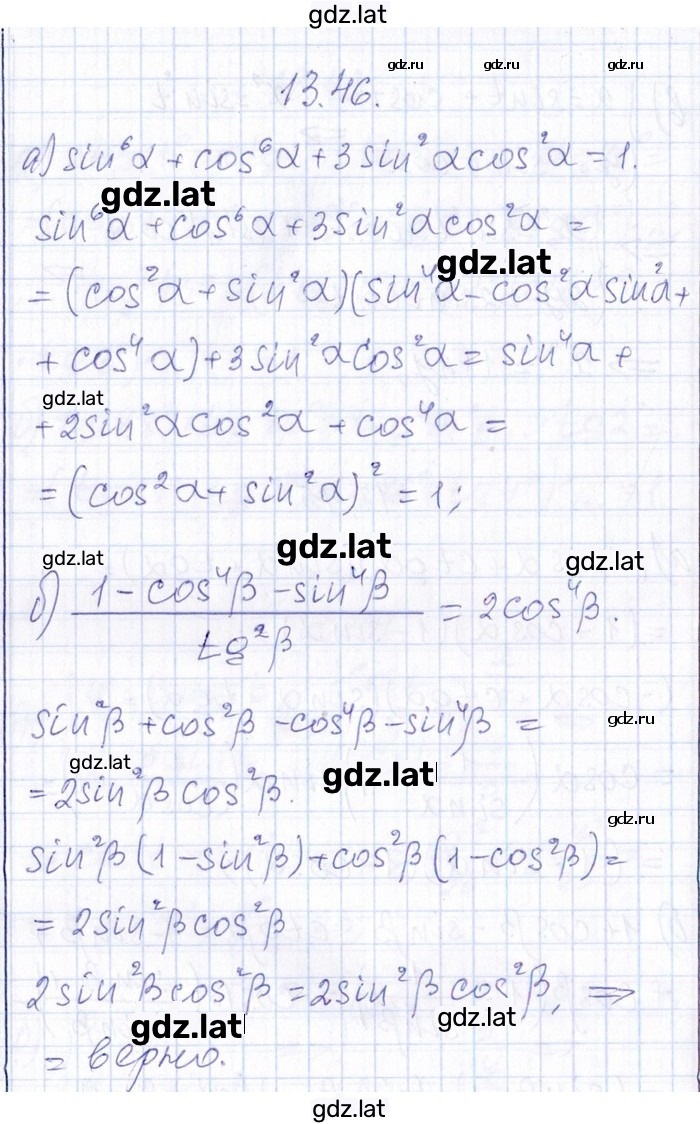 gdz.lat
gdz.ru gdz.ru gdz.ru
13.46.
а) sin⁶α + cos⁶α + 3sin²α cos²α = 1.
gdz.lat
sin⁶α + cos⁶α + 3sin²α cos²α =
gdz.lat
= (cos²α + sin²α)(sin⁴α - cos²α sin²α +
+ cos⁴α) + 3sin²α cos²α = sin⁴α +
gdz.lat
+ 2sin²α cos²α + cos⁴α =
= (cos²α + sin²α)² = 1;
gdz.lat gdz.lat gdz.lat
б) (1 - cos⁴β - sin⁴β) / tg²β = 2cos⁴β.
sin²β + cos²β - cos⁴β - sin⁴β =
gdz.ru
gdz.lat gdz.lat
= 2sin²β cos²β.
gdz.ru
sin²β(1 - sin²β) + cos²β(1 - cos²β) =
= 2sin²β cos²β
2sin²β cos²β = 2sin²β cos²β, ⇒
gdz.lat gdz.lat
= верно.
gdz.lat